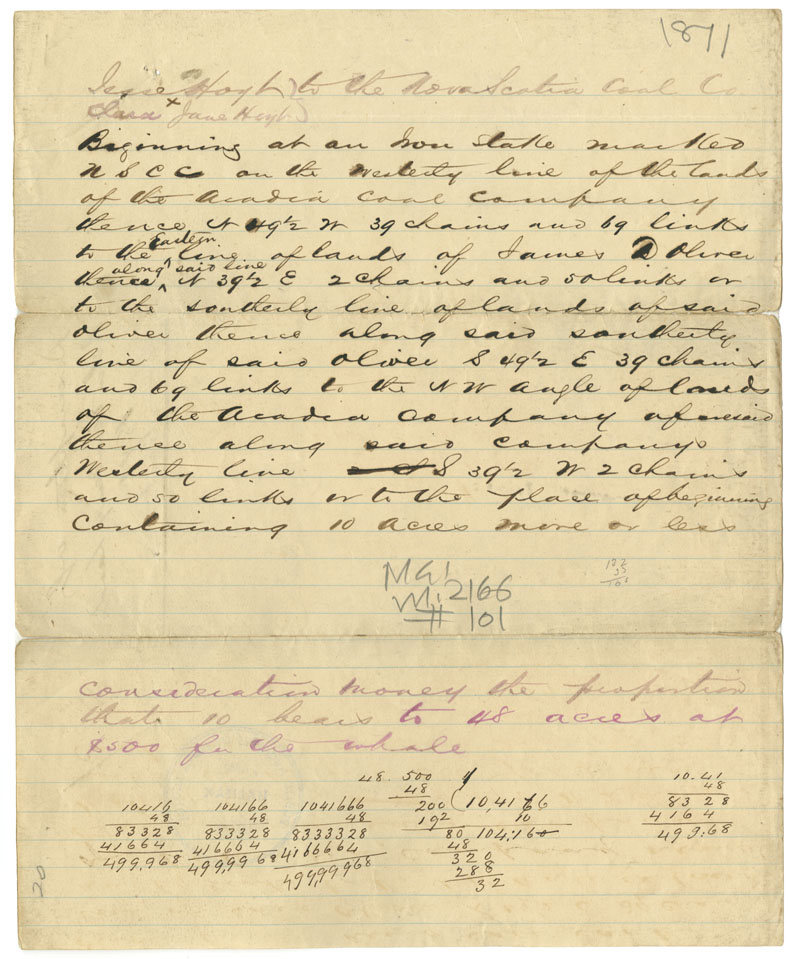 1871
Jesse Hoyt } to the Nova Scotia Coal Co.
Clara x Jane Hoyt }
Beginning at an Iron Stake marked
N S C C on the westerly line of the lands
of the Acadia Coal Company
thence N 49½ W 39 chains and 69 links
to the Eastern line of lands of James D Oliver
thence along said line N 39½ E 2 chains and 50 links or
to the southerly line of lands of said
Oliver thence along said southerly
line of said Oliver S 49½ E 39 chains
and 69 links to the N W Angle of lands
of the Acadia Company aforesaid
thence along said companys
Westerly line S 39½ W 2 chains
and 50 links or to the place of beginning
containing 10 acres more or less
MG1
2166
# 101
Consideration money the proportion
that 10 bears to 48 acres at
$500 for the whale
48. 500
48
200 ( 10,4166
192 10
80 104,160
48
320
288
32
10416
48
83328
41664
499,968
104166
48
833328
416664
499,9968
1041666
48
8333328
4166664
499,99968
10.41
48
8328
4164
499.68
20